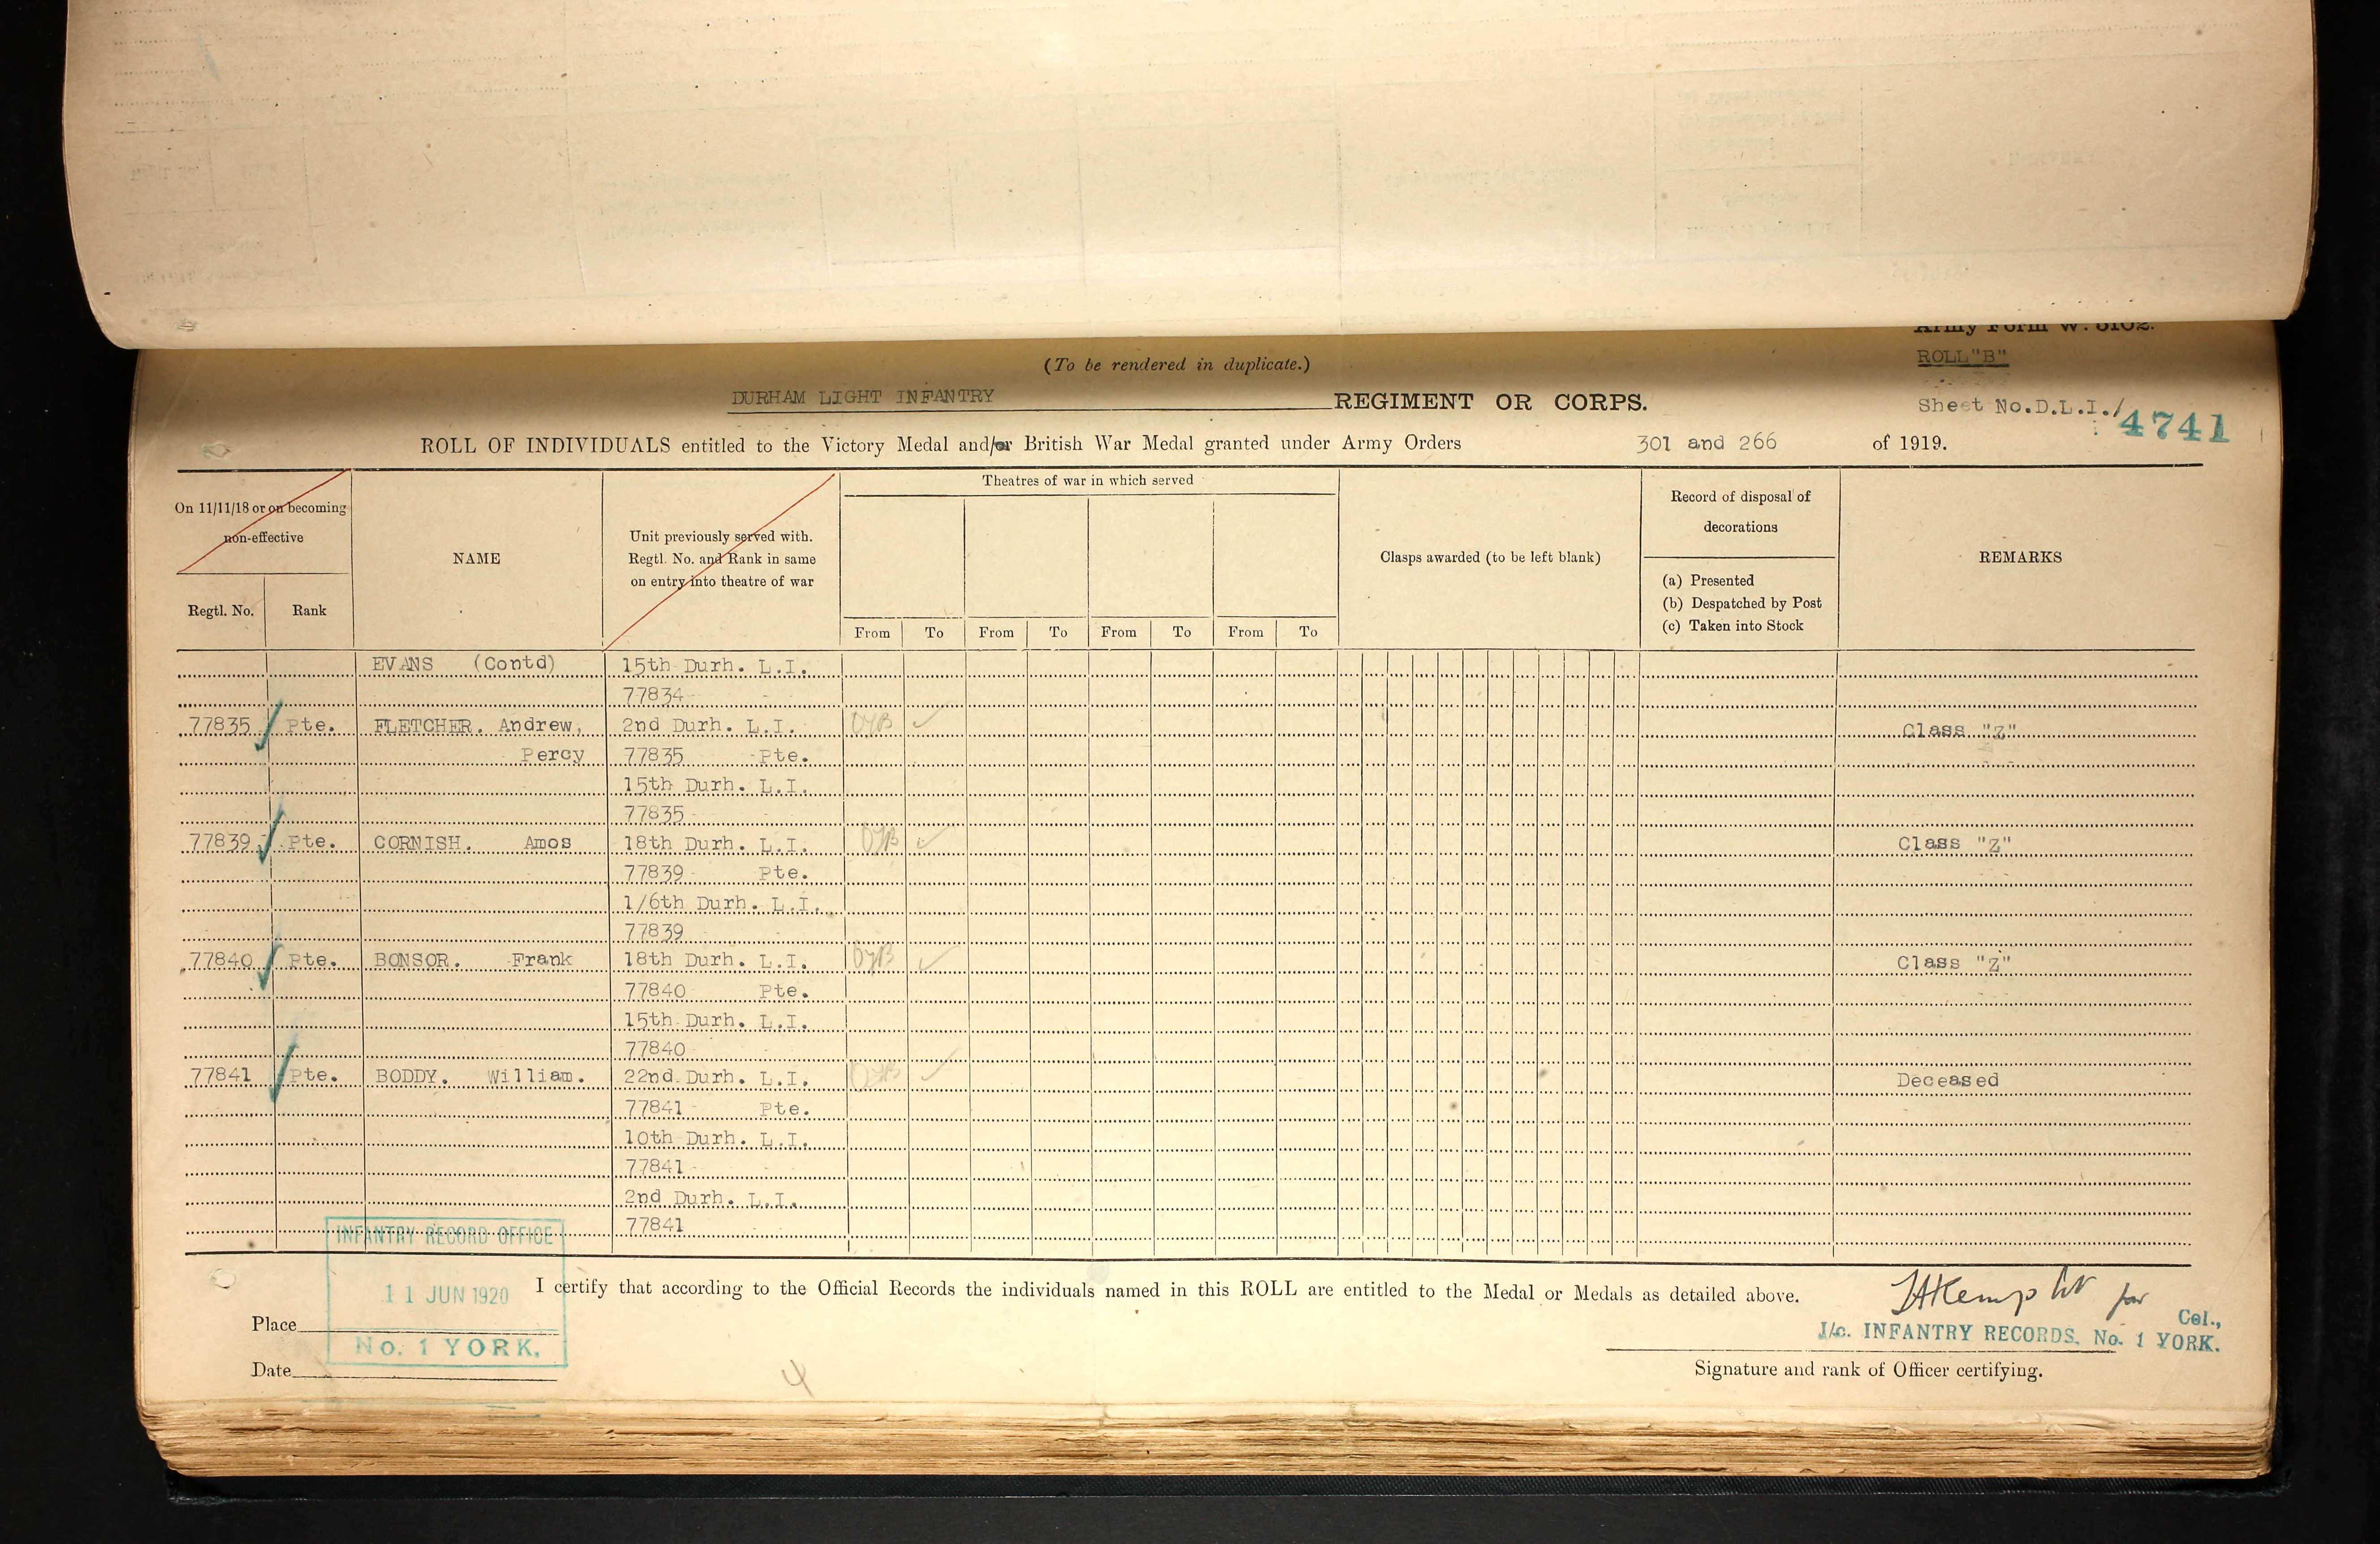 Army Form W. 5102.
(To be rendered in duplicate.)
ROLL "B"
DURHAM LIGHT INFANTRY REGIMENT OR CORPS.
Sheet No.D.L.I./ 4741
ROLL OF INDIVIDUALS entitled to the Victory Medal and/or British War Medal granted under Army Orders 301 and 266 of 1919.
On 11/11/18 or on becoming non-effective
Regtl. No. Rank
NAME
Unit previously served with.
Regtl. No. and Rank in same
on entry into theatre of war
Theatres of war in which served
From To From To From To From To
Clasps awarded (to be left blank)
Record of disposal of
decorations
(a) Presented
(b) Despatched by Post
(c) Taken into Stock
REMARKS
EVANS (Contd) 15th Durh. L.I.
77834
77835 Pte. FLETCHER. Andrew, 2nd Durh. L.I. Class "Z"
Percy 77835 Pte.
15th Durh. L.I.
77835
77839 Pte. CORNISH. Amos 18th Durh. L.I. Class "Z"
77839 Pte.
1/6th Durh. L.I.
77839
77840 Pte. BONSOR. Frank 18th Durh. L.I. Class "Z"
77840 Pte.
15th Durh. L.I.
77840
77841 Pte. BODDY. William. 22nd Durh. L.I. Deceased
77841 Pte.
10th Durh. L.I.
77841
2nd Durh. L.I.
77841
INFANTRY RECORD OFFICE
11 JUN 1920
No. 1 YORK.
I certify that according to the Official Records the individuals named in this ROLL are entitled to the Medal or Medals as detailed above.
for Col.,
I/c. INFANTRY RECORDS, No. 1 YORK.
Place
Date
4
Signature and rank of Officer certifying.